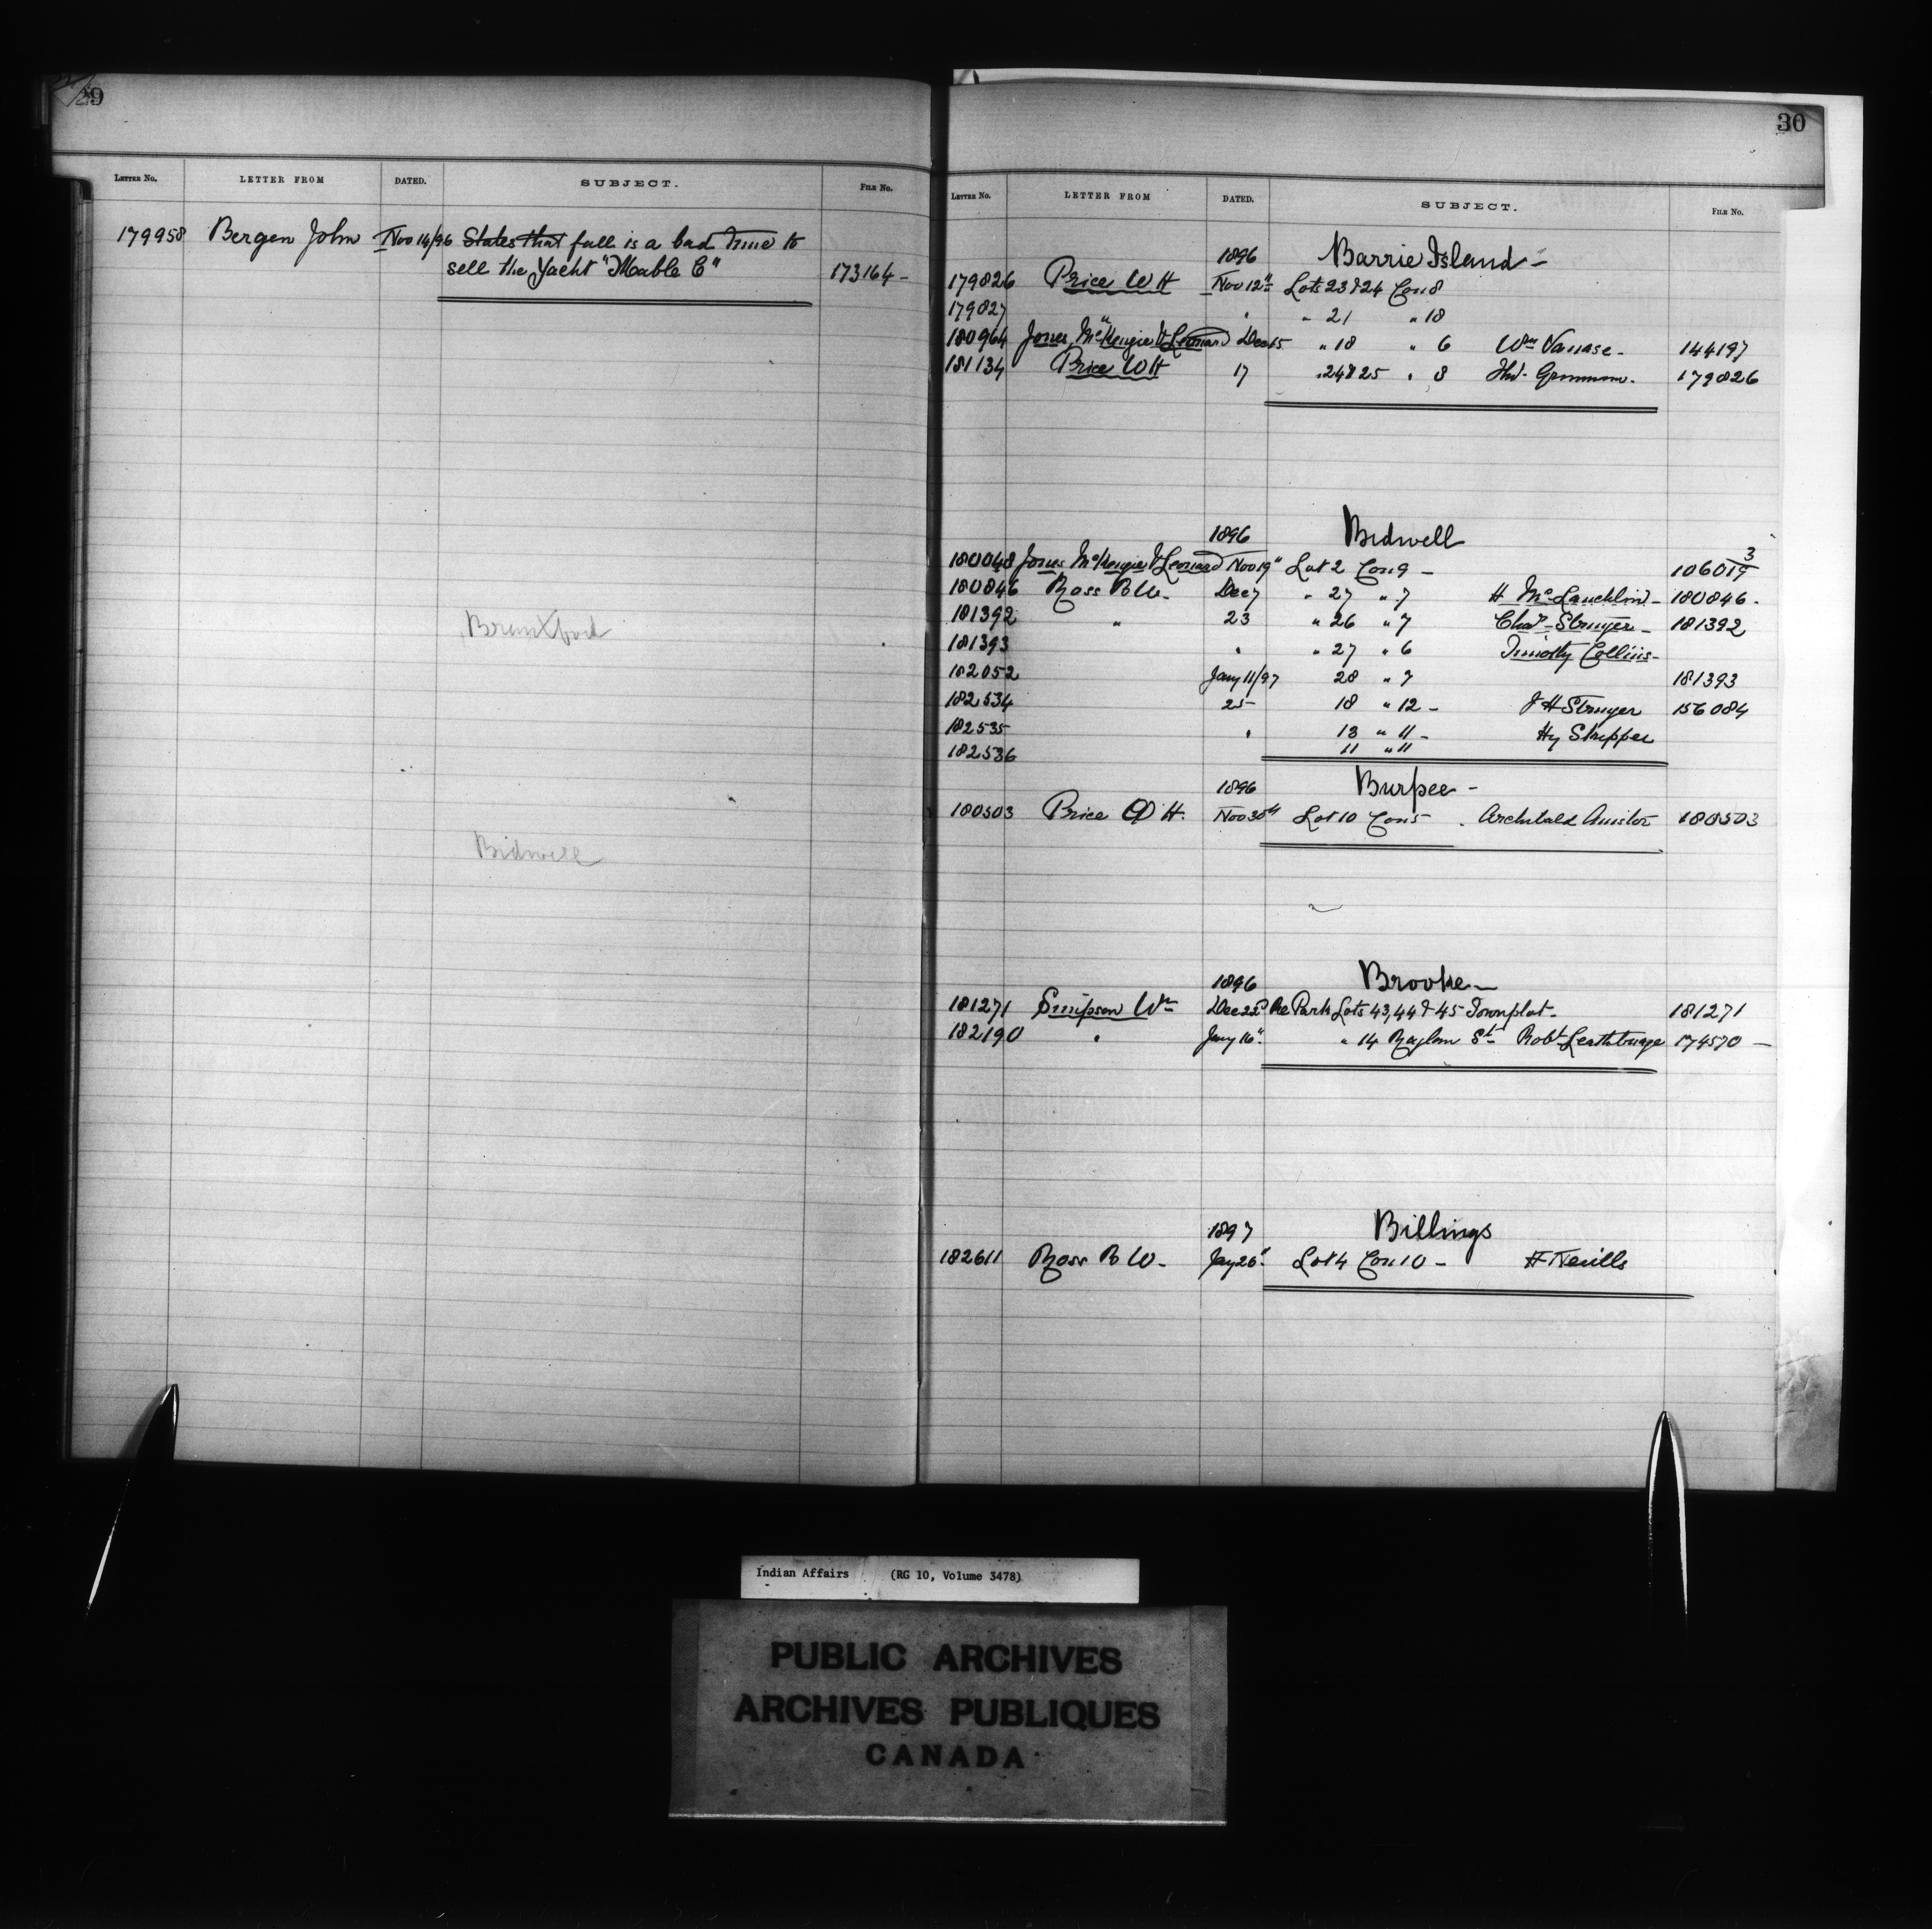 29
LETTER No. LETTER FROM DATED. SUBJECT. FILE No.
179958 Bergen John Nov 14/96 States that fall is a bad time to
sell the Yacht "Mable C" 173164 -
Brantford
Bidwell
30
LETTER No. LETTER FROM DATED. SUBJECT. FILE No.
1896 Barrie Island -
179826 Price W H Nov 12" Lots 23 & 24 Con 8
179827 " " " 21 " 18
180964 Jones McKenzie & Leonard Dec 15 " 18 " 6 Wm 144197
181134 Price W H 17 " 24 & 25 " 8 179826
1896 Bidwell
180048 Jones McKenzie & Leonard Nov 19" Lot 2 Con 9 - 106019/3
180846 Ross B W. Dec 7 " 27 " 7 H McLauchlin - 180846.
181392 " 23 " 26 " 7 Chas. - 181392
181393 " " 27 " 6 Timothy Collins -
182052 Jany 11/97 28 " 7 181393
182534 25 18 " 12 - J H 156084
182535 " 13 " 11 - Hy Skippen
182536 11 " 11
1896 Burpee -
180503 Price W H. Nov 30th Lot 10 Con 5 . Archibald 180503
1896 Brooke -
181271 Simpson Wm Dec 22d Re Park Lots 43, 44 & 45 Townplot - 181271
182190 " Jany 16" " 14 Raglan St. Robt 174570 -
1897 Billings
182611 Ross B W - Jay 26" Lot 4 Con 10 - H Nevills
Indian Affairs (RG 10, Volume 3478)
PUBLIC ARCHIVES
ARCHIVES PUBLIQUES
CANADA